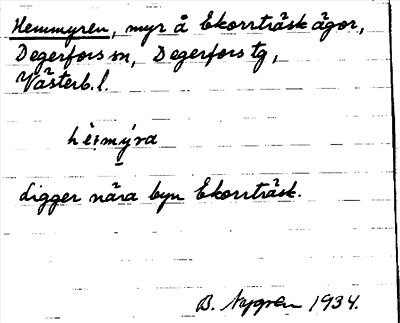 Hemmyren, myr å Ekorrträsk ägor,
Degerfors sn, Degerfors tg,
Västerb. l.
hè:mýra
Ligger nära byn Ekorrträsk.
B. Nygren 1934.